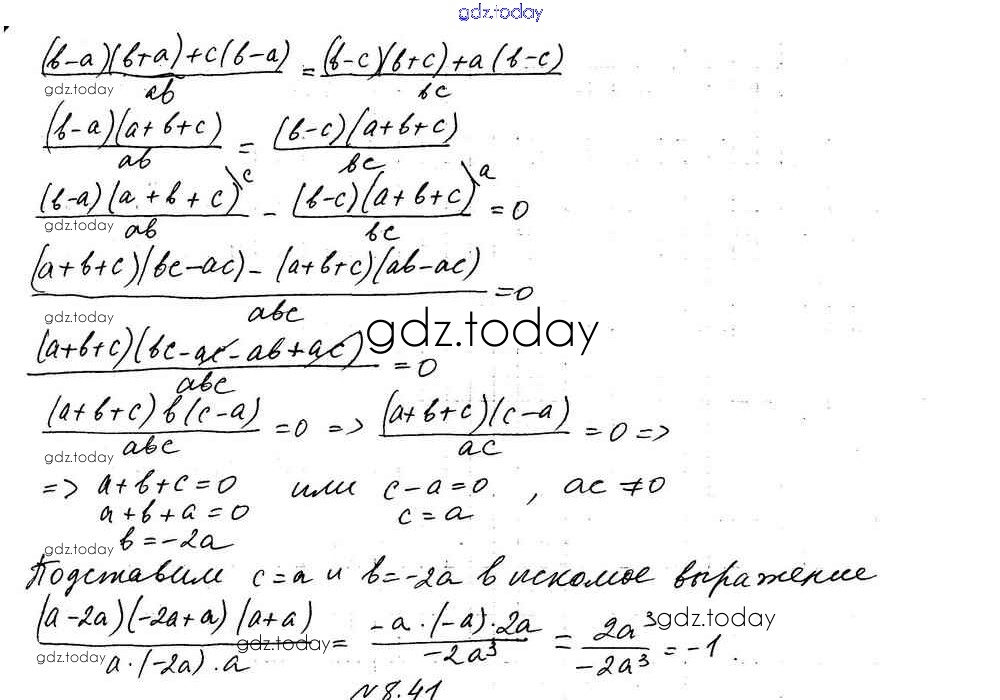 gdz.today
((b-a)(b+a)+c(b-a))/ab = ((b-c)(b+c)+a(b-c))/bc
gdz.today
((b-a)(a+b+c))/ab = ((b-c)(a+b+c))/bc
((b-a)(a+b+c))/ab \c - ((b-c)(a+b+c))/bc \a = 0
gdz.today
((a+b+c)(bc-ac)-(a+b+c)(ab-ac))/abc = 0
gdz.today
gdz.today
((a+b+c)(bc-ac-ab+ac))/abc = 0
((a+b+c)b(c-a))/abc = 0 => ((a+b+c)(c-a))/ac = 0 =>
gdz.today
=> a+b+c=0 или c-a=0, ac≠0
a+b+a=0 c=a
b=-2a
gdz.today
Подставим c=a и b=-2a в искомое выражение
((a-2a)(-2a+a)(a+a))/(a·(-2a)·a) = (-a·(-a)·2a)/(-2a³) = 2a³/(-2a³) = -1.
gdz.today
gdz.today
gdz.today
№8.41